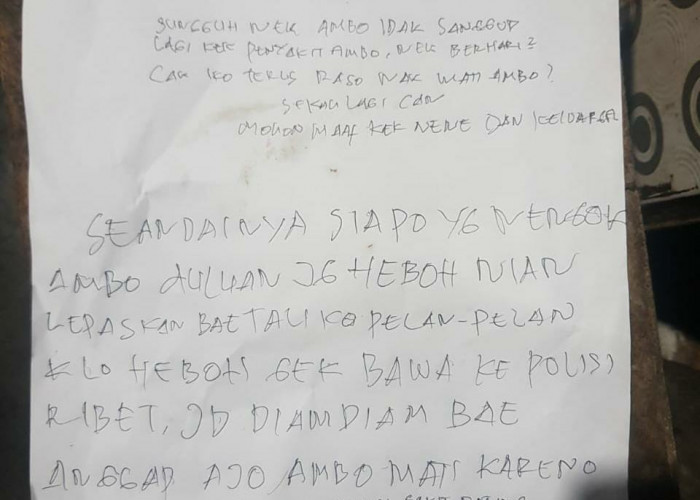 SUNGGUH NEK AMBO IDAK SANGGUP
LAGI KEK PENYAKIT AMBO, NEK BERHARI2
CAK IKO TERUS RASO NAK MATI AMBO?
SEKALI LAGI CAN
MOHON MAAF KEK NENE DAN KELUARGA
SEANDAINYA SIAPO YG NENGOK
AMBO DULUAN JG HEBOH NIAN
LEPASKAN BAE TALI KO PELAN-PELAN
KLO HEBOH GEK BAWA KE POLISI
RIBET, JD DIAM DIAM BAE
ANGGAP AJO AMBO MATI KARENO